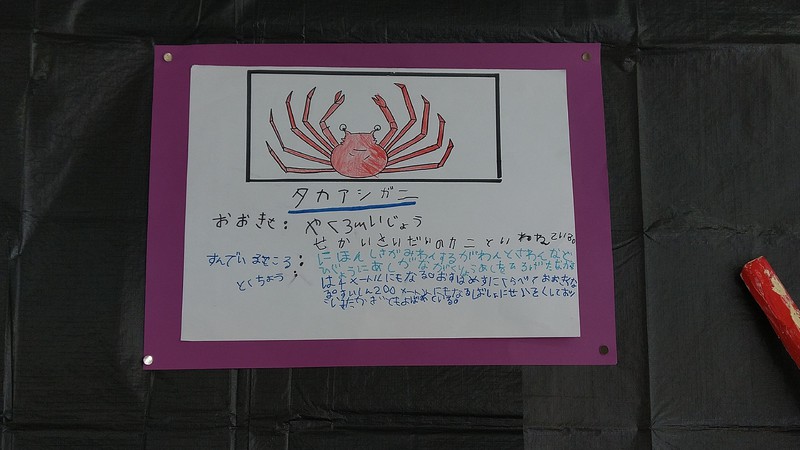 タカアシガニ
おおきさ: やく3mいじょう
せかいさいだいのカニといわれている。
すんでいるところ: にほん しさがみわんするがわんとさわんなど
とくちょう: ひじょうにあしがながくりょうあしをひろげたながさ
は4メートルにもなる。おすはめすにくらべておおきくな
る。すいしん200メートルにもなるばしょにせいそくしており
でもよばれている。